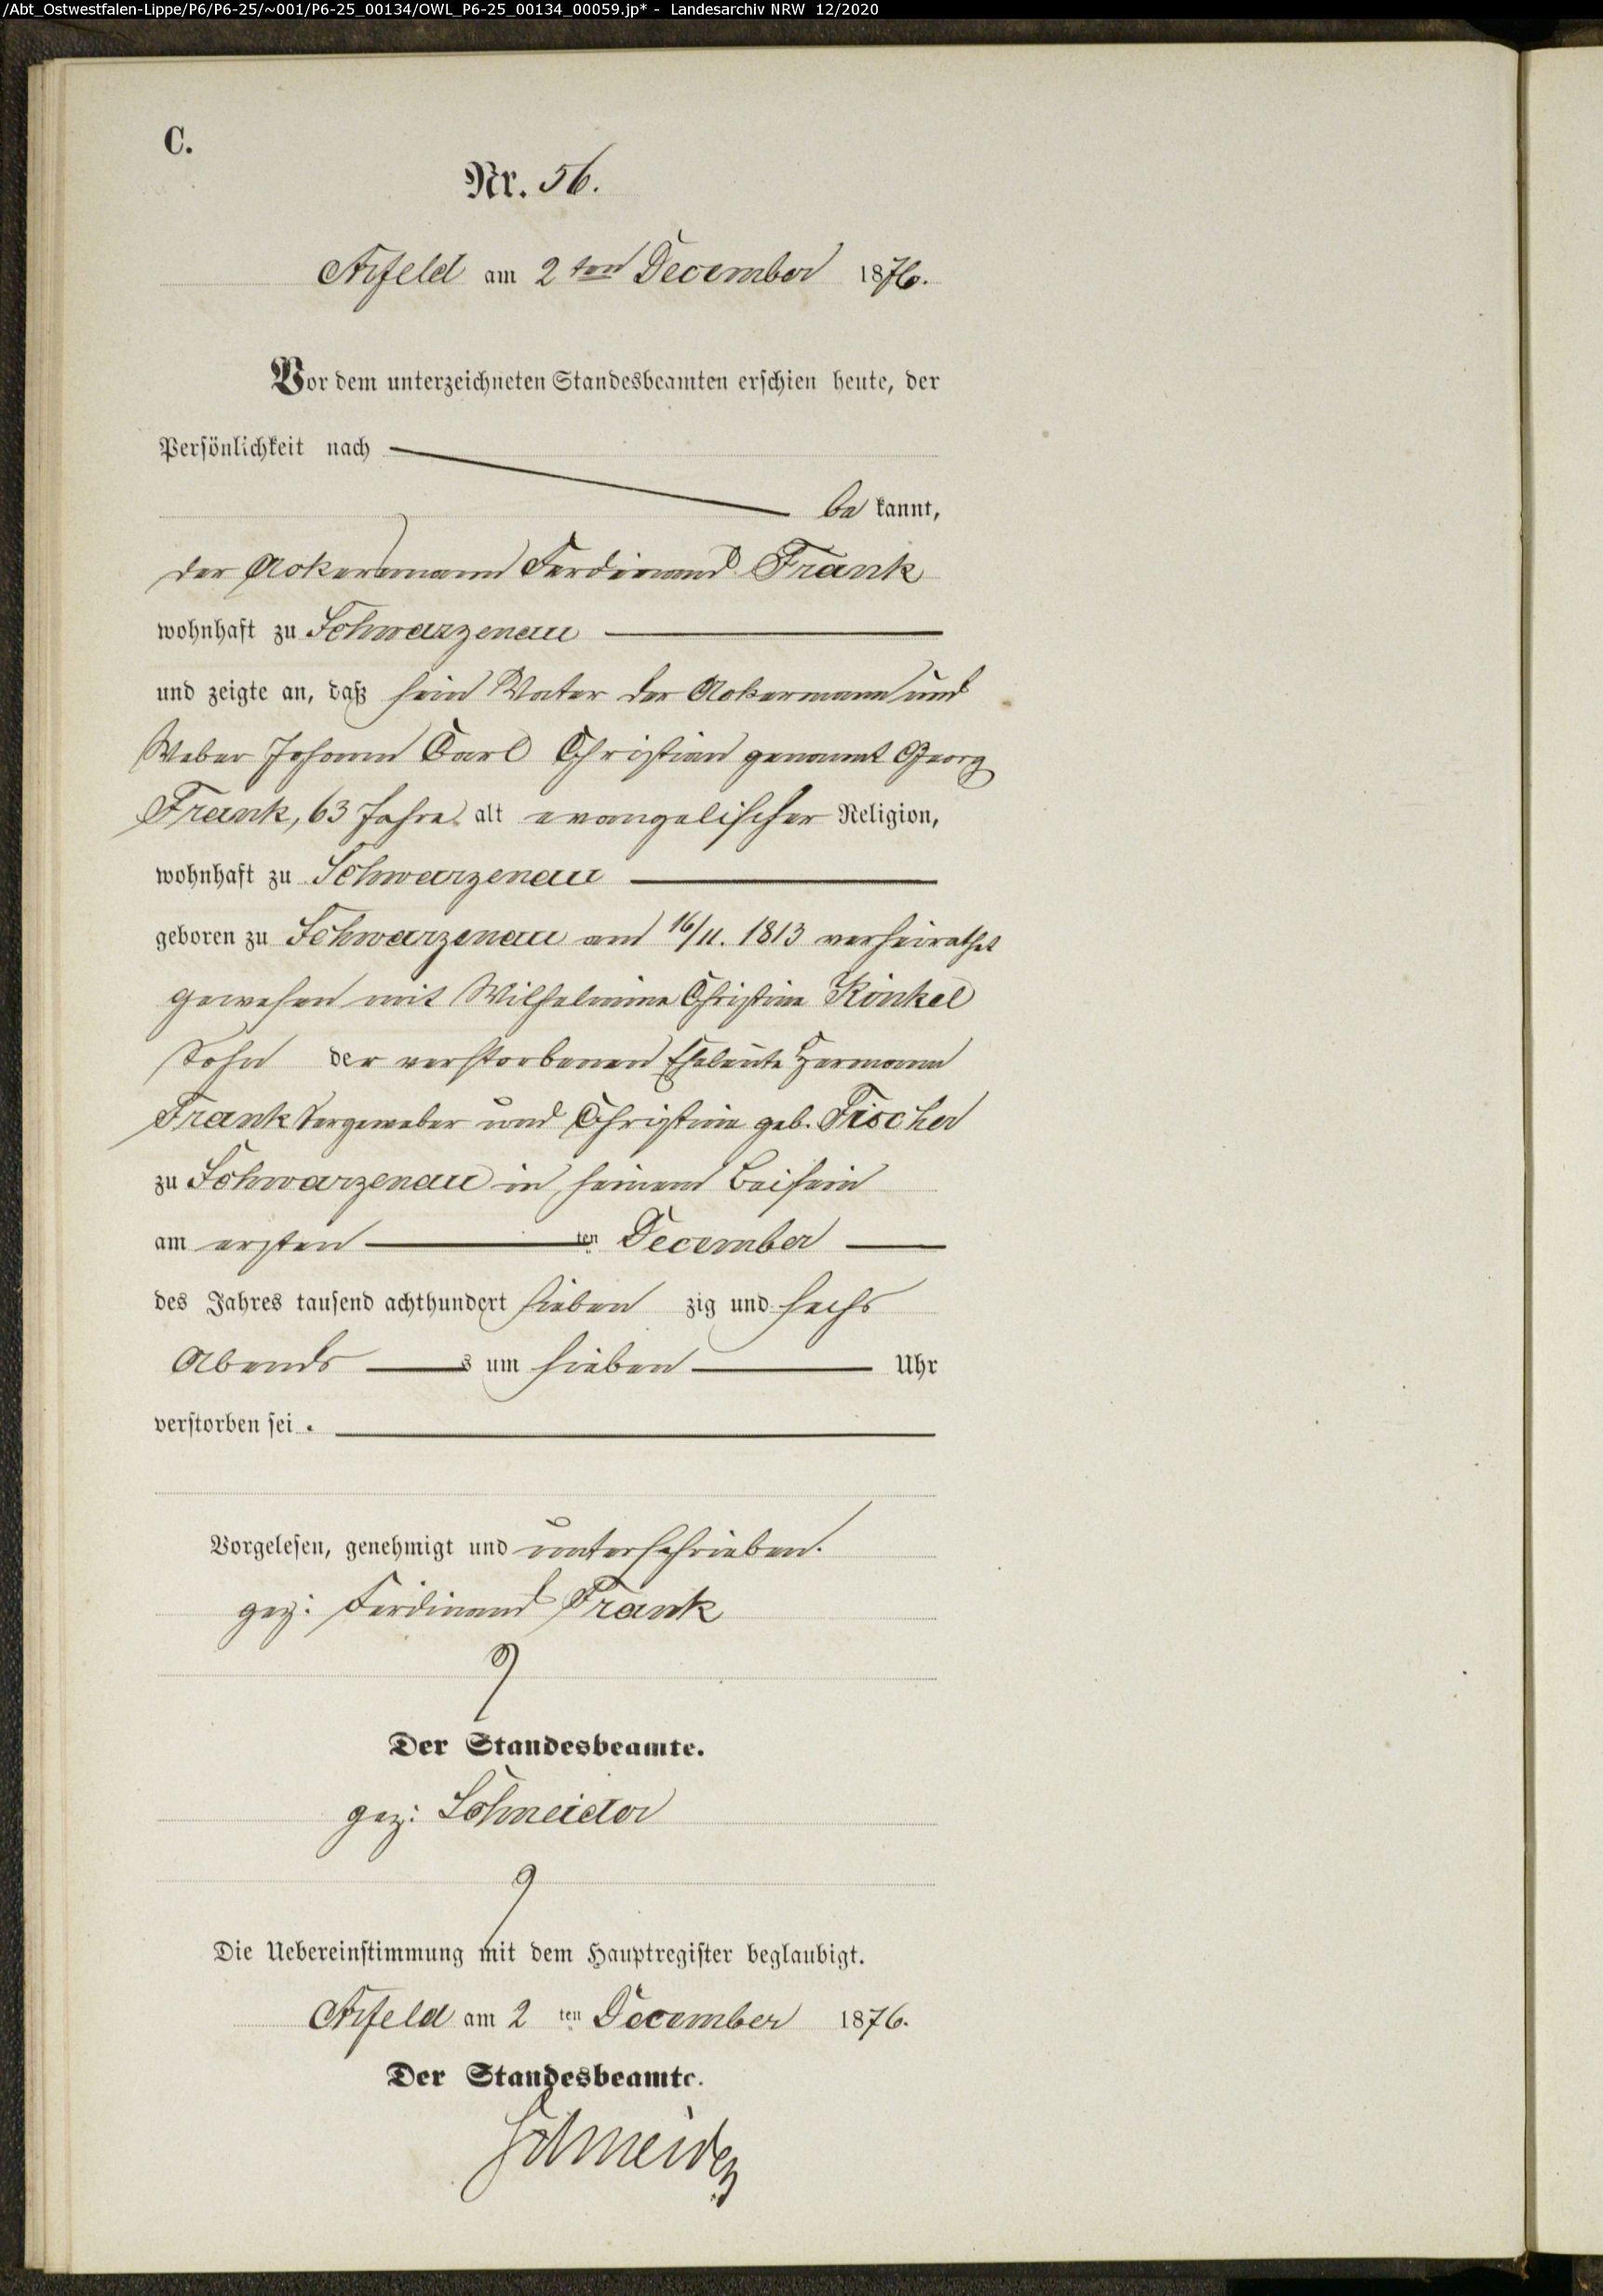 /Abt_Ostwestfalen-Lippe/P6/P6-25/~001/P6-25_00134/OWL_P6-25_00134_00059.jp* - Landesarchiv NRW 12/2020
C.
Nr. 56.
Arfeld am 2ten December 1876.
Vor dem unterzeichneten Standesbeamten erschien heute, der
Persönlichkeit nach
be kannt,
der Ackersmann Ferdinand Frank
wohnhaft zu Schwarzenau
und zeigte an, daß sein Vater der Ackermann und
Weber Johann Carl Christian genannt Georg
Frank, 63 Jahre alt evangelischer Religion,
wohnhaft zu Schwarzenau
geboren zu Schwarzenau am 16/11. 1813 verheirathet
gewesen mit Wilhelmine Christine Kinkel
Sohn der verstorbenen Eheleute Hermann
Frank und Christine geb. Fischer
zu Schwarzenau in seinem Beisein
am ersten ten December
des Jahres tausend achthundert sieben zig und sechs
Abends s um sieben Uhr
verstorben sei.
Vorgelesen, genehmigt und unterschrieben.
gez: Ferdinand Frank
Der Standesbeamte.
gez: Schneider
Die Uebereinstimmung mit dem Hauptregister beglaubigt.
Arfeld am 2 ten December 1876.
Der Standesbeamte.
Schneider